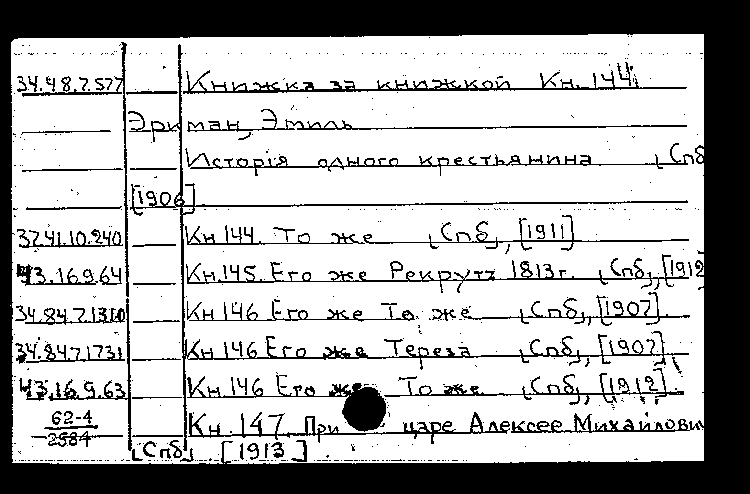 34.48.7.577 Книжка за книжкой Кн. 144
Эркман, Эмиль
Исторія одного крестьянина [Спб
[1906].
37.41.10.240 Кн 144. То же [Спб], [1911]
43.16.9.64 Кн.145. Его же Рекрутъ 1813г. [Спб], [1912
34.84.7.1310 Кн 146 Его же То же [Спб], [1907].
34.84.7.1731 Кн 146 Его же Тереза [Спб], [1907].
43.16.9.63 Кн. 146 Его же То же [Спб], [1912].
62-4 Кн. 147. При царе Алексее Михайлови
2584
[Спб]. [1913].